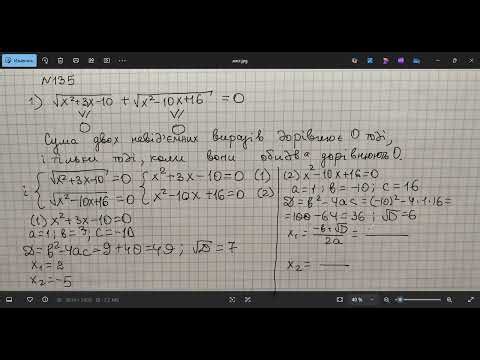 Изменить
мат.jpg
№135
1) √x²+3x-10 + √x²-10x+16 = 0
0 0
Сума двох невід'ємних виразів дорівнює 0 тоді,
і тільки тоді, коли вони обидва дорівнюють 0.
і { √x²+3x-10 = 0 { x²+3x-10=0 (1)
√x²-10x+16 = 0 x²-10x+16=0 (2)
(1) x²+3x-10=0
a=1; b=3, c=-10
D=b²-4ac=9+40=49; √D=7
x₁=2
x₂=-5
(2) x²-10x+16=0
a=1; b=-10; c=16
D=b²-4ac=(-10)²-4·1·16=
=100-64=36; √D=6
x₁= -b+√D/2a =
x₂=
40 %